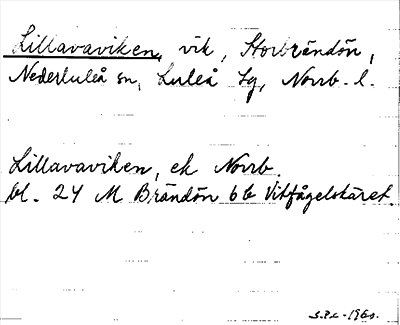 Lillavaviken, vik, Storbrändön,
Nederluleå sn, Luleå tg, Norrb. l.
Lillavaviken, ek Norrb.
bl. 24 M Brändön 6b Vitfågelskäret.
1960.